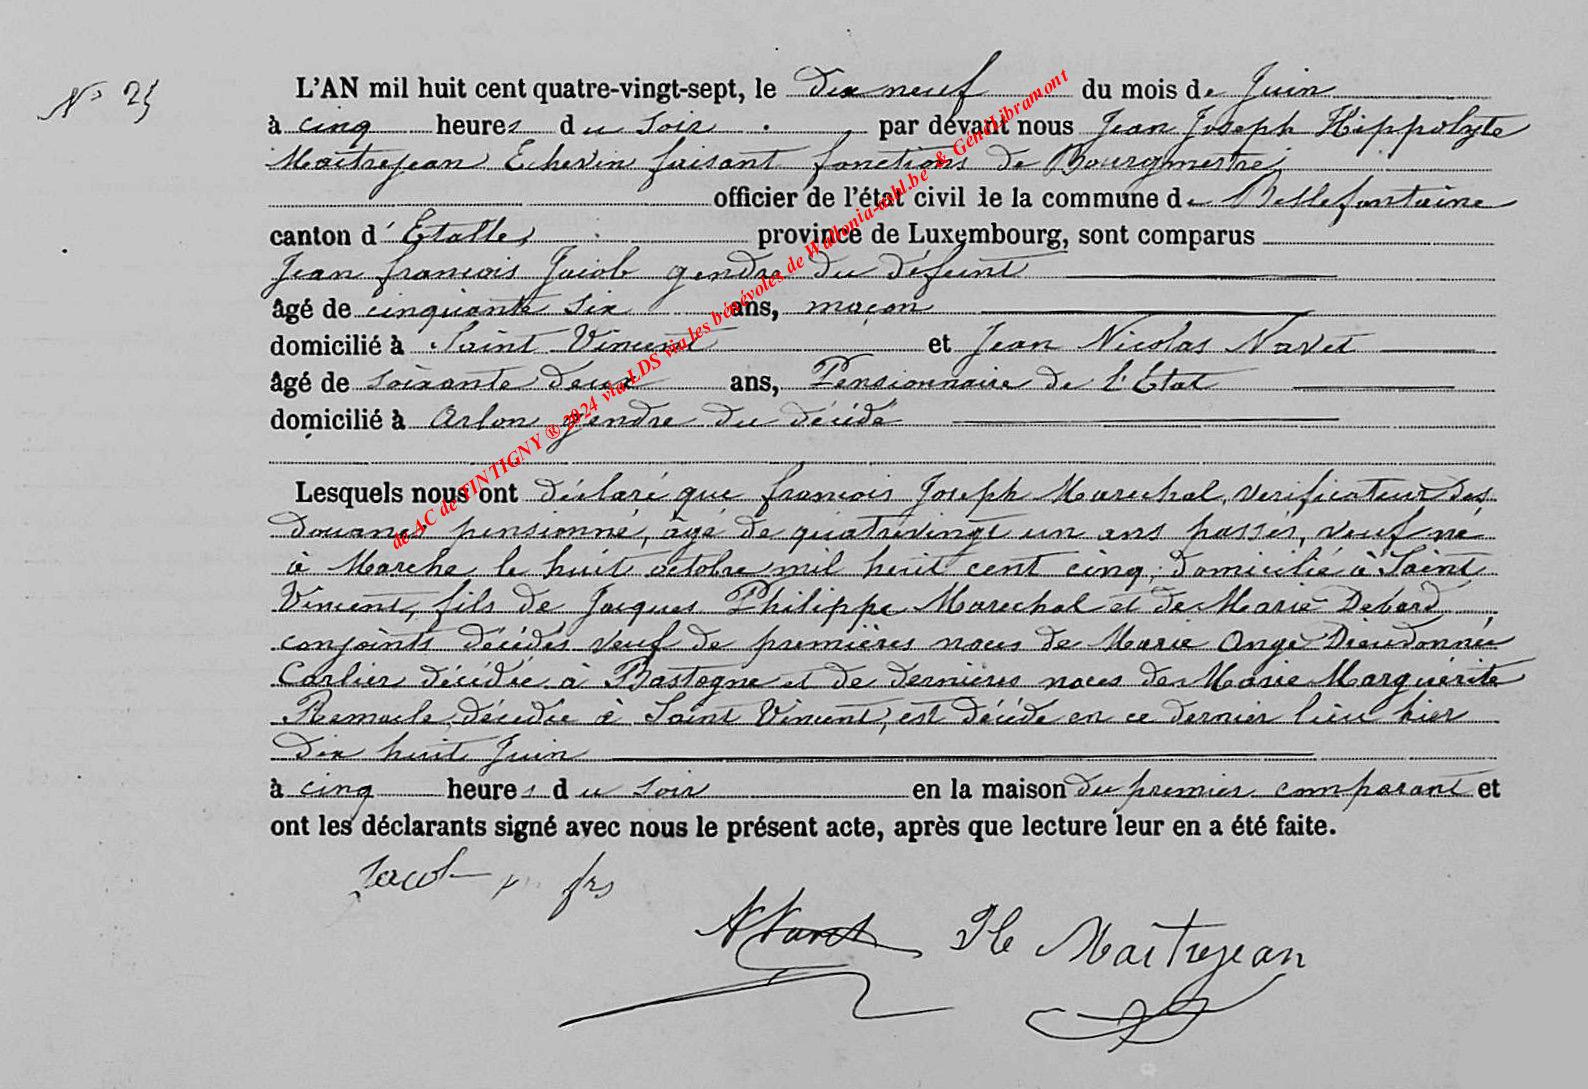 N° 25
L'AN mil huit cent quatre-vingt-sept, le dix neuf du mois de Juin
à cinq heures du soir, par devant nous Jean Joseph Hippolyte
Maîtrejean Echevin faisant fonctions de Bourgmestre
officier de l'état civil de la commune de Bellefontaine
canton d'Etalle, province de Luxembourg, sont comparus
Jean françois Jacob gendre du défunt
âgé de cinquante six ans, maçon
domicilié à Saint Vincent et Jean Nicolas Navet
âgé de soixante deux ans, Pensionnaire de l'Etat
domicilié à Arlon gendre du décédé
Lesquels nous ont déclaré que françois Joseph Marechal, verificateur des
douanes pensionné, âgé de quatrevingt un ans passés, veuf né
à Marche le huit octobre mil huit cent cinq, domicilié à Saint
Vincent, fils de Jacques Philippe Marechal et de Marie Debard
conjoints décédés veuf de premières noces de Marie Ange Dieudonnée
Carlier décédée à Bastogne et de dernières noces de Marie Marguérite
Remacle décédée à Saint Vincent, est décédé en ce dernier lieu hier
dix huit Juin
à cinq heures du soir en la maison du premier comparant et
ont les déclarants signé avec nous le présent acte, après que lecture leur en a été faite.
Jacob frs
Navet Hte Maîtrejean
de AC de TINTIGNY ® 2024 via LDS via les bénévoles de Wallonia-asbl.be & GénéLibramont